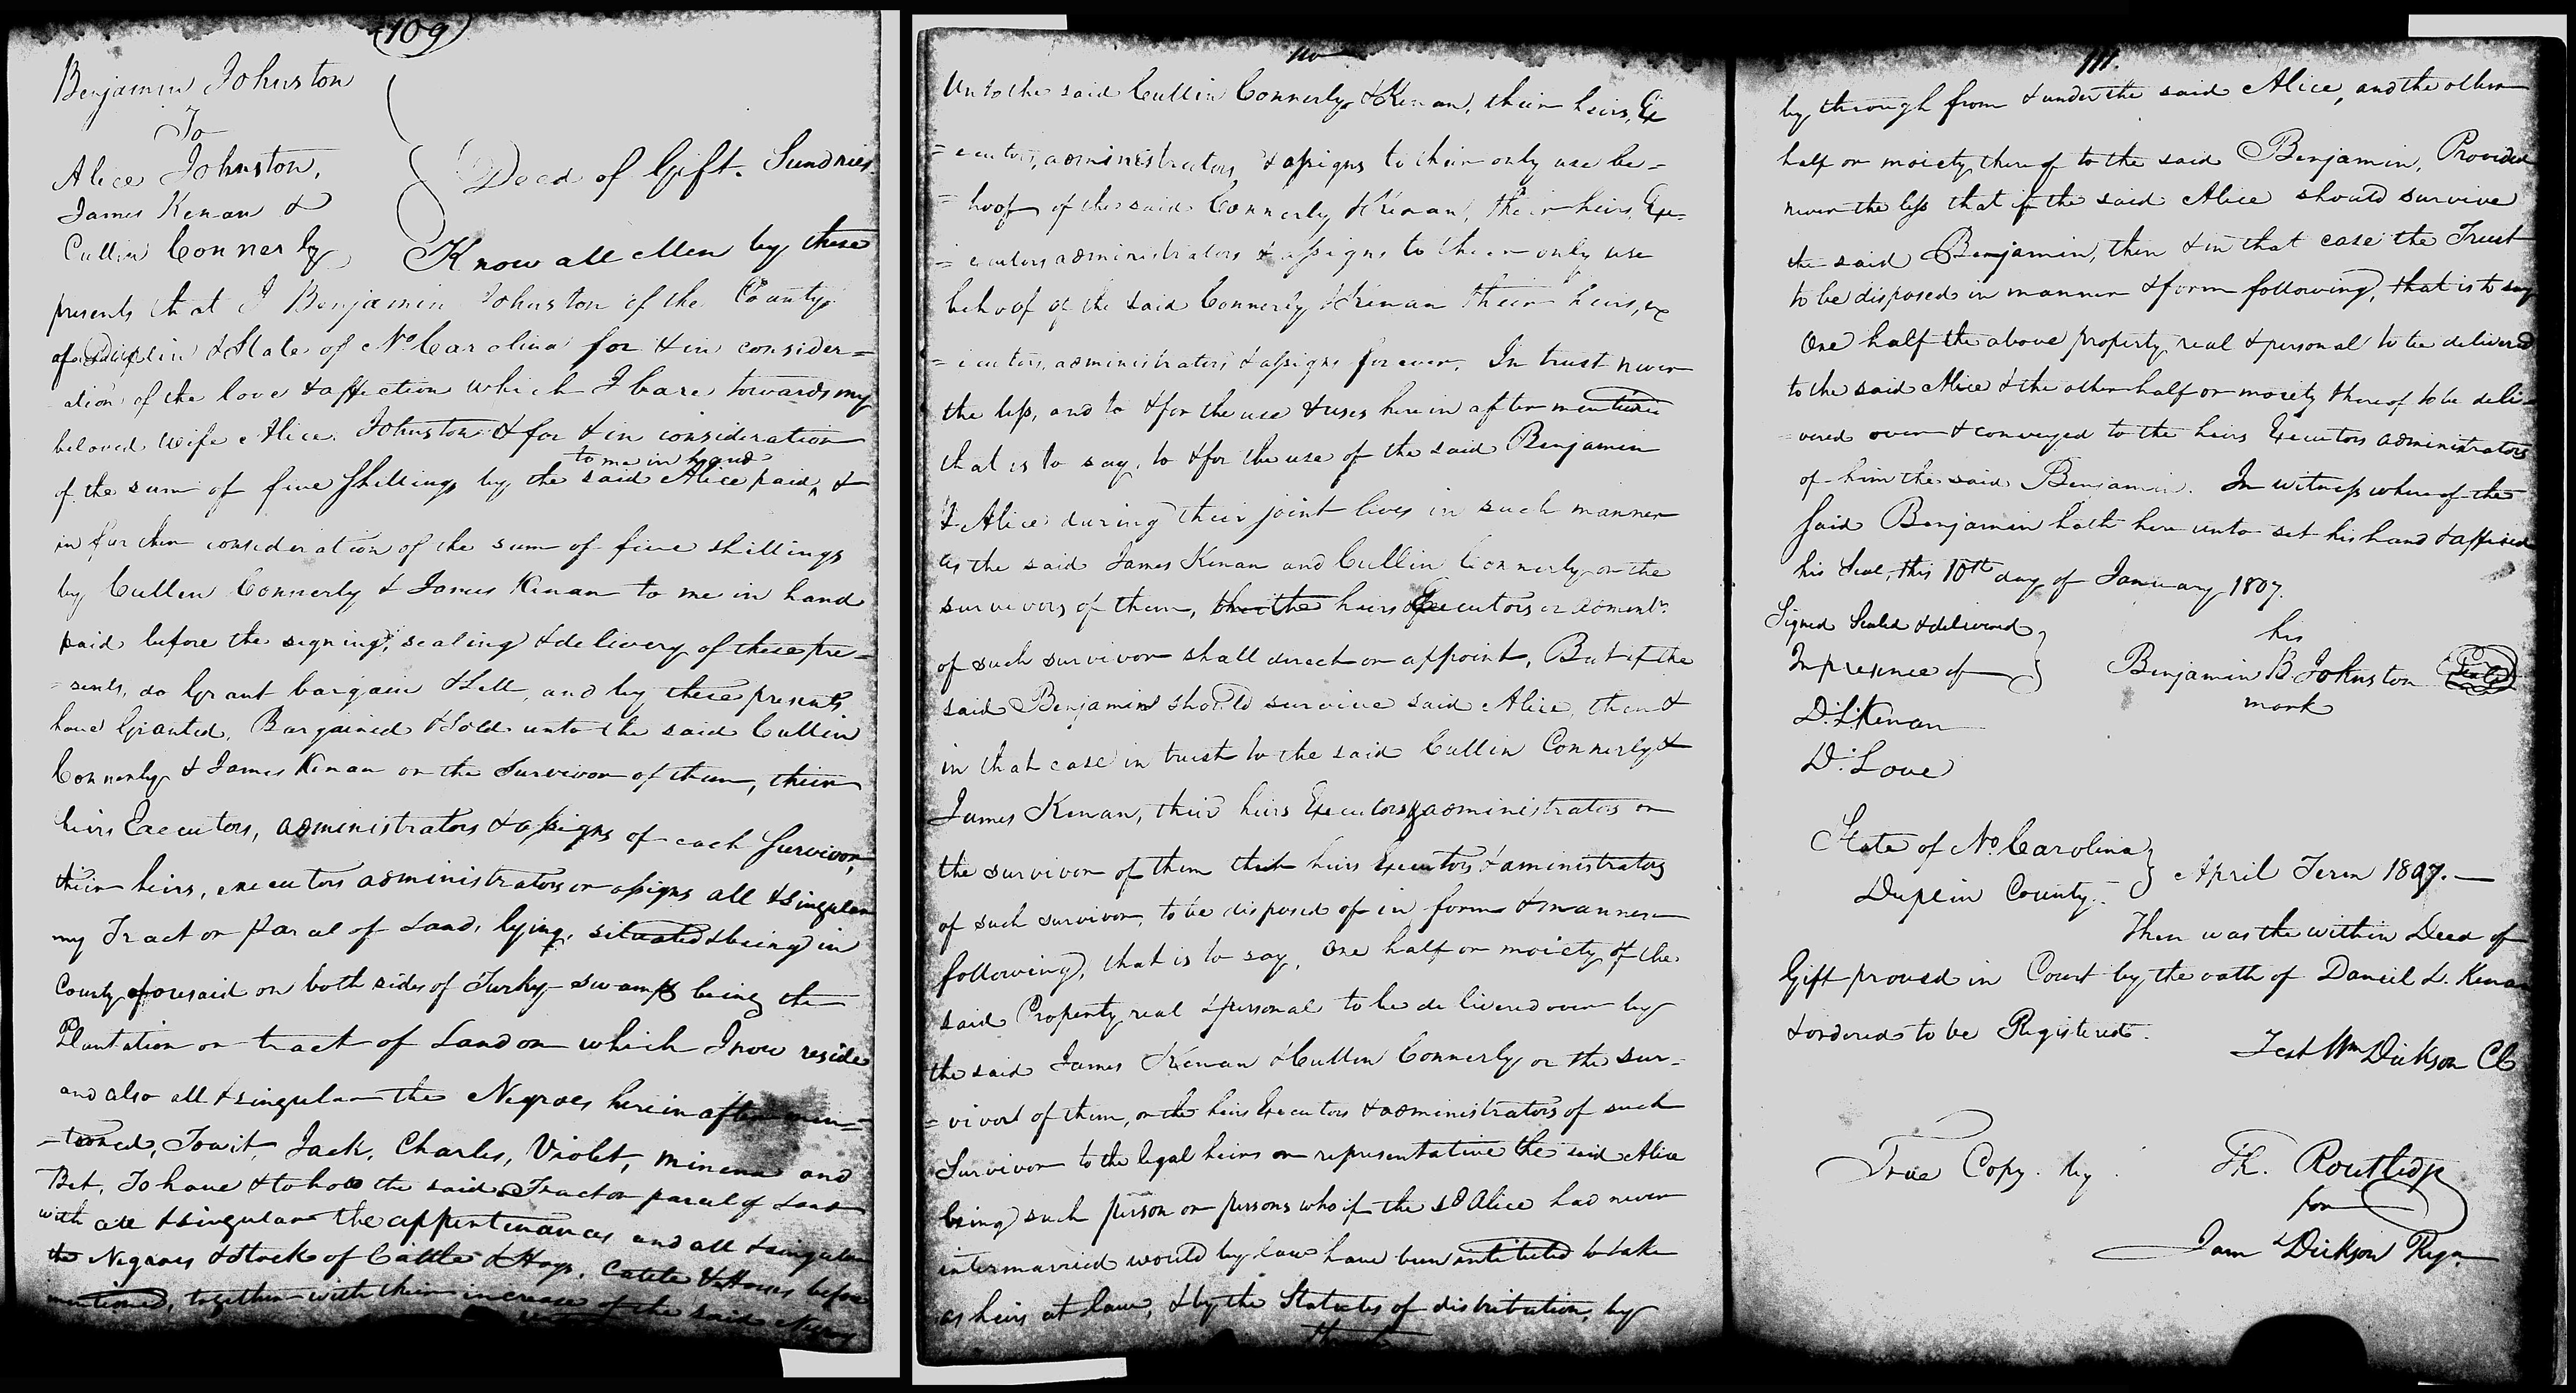 109
Benjamin Johnston
To
Alice Johnston,
James Kenan &
Cullin Connerly
Deed of Gift. Sundries
Know all Men by these
presents that I Benjamin Johnston of the County
of Duplin & State of No Carolina for & in consider=
ation of the love & affection which I bare towards my
beloved wife Alice Johnston & for & in consideration
to me in hand
of the sum of five Shillings by the said Alice paid, &
in further consideration of the sum of five shillings
by Cullen Connerly & James Kenan to me in hand
paid before the signing, sealing & delivery of these pre=
=sents, do Grant bargain & Sell, and by these presents
have Granted, Bargained & Sold unto the said Cullin
Connerly & James Kenan or the Survivor of them, their
heirs Executors, administrators & assigns of each Survivor,
their heirs, executors administrators or assigns all & singular
my Tract or Parcel of Land, lying, situated & being in
County aforesaid on both sides of Turky-swamp being the
Plantation or tract of Land on which I now reside
and also all & singular the Negroes herein after men=
=tioned, Towit, Jack, Charles, Violet, Minerva and
Bet, To have & to hold the said Tract or parcel of Land
with all & singular the appertenances and all & singular
the Negroes & Stock of Cattle & Hogs, Cattle & Horses before
mentioned, together with their increase of the said Negroes
110
Unto the said Cullin Connerly & Kenan, their heirs, Ex
=ecutors, administrators, & assigns to their only use be=
=hoof of the said Connerly & Kenan, their heirs, Exe=
=cutors administrators & assigns to their only use
behoof of the said Connerly & Kenan their heirs, ex
=ecutors, administrators & assigns forever. In trust never
the less, and to & for the use & uses herein after mentioned
that is to say, to & for the use of the said Benjamin
& Alice during their joint lives in such manner
as the said James Kenan and Cullin Connerly or the
survivors of them, the heirs Executors or admentr.
of such survivor shall direct or appoint, But if the
said Benjamin should survive said Alice, then &
in that case in trust to the said Cullin Connerly &
James Kenan, their heirs Executors & administrators or
the survivor of them their heirs Executors & aministrators
of such survivor, to be disposed of in form & manner
following, that is to say, One half or moiety of the
said Property real & personal to be delivered over by
the said James Kenan & Cullin Connerly or the sur=
=vivor of them, or the heirs Executors & administrators of such
Survivor to the legal heirs or representative the said Alice
being such person or persons who if the sd Alice had never
intermarried would by law have been intitled to take
as heirs at law, & by the Statutes of distribution, by
111.
by through from & under the said Alice, and the other
half or moiety thereof to the said Benjamin, Provided
never the less that if the said Alice should survive
the said Benjamin, then & in that case the Trust
to be disposed in manner & form following, that is to say
One half the above property real & personal to be delivered
to the said Alice & the other half or moiety thereof to be deli=
=vered over & conveyed to the heirs Executors administrators
of him the said Benjamin. In witness whereof the
said Benjamin hath here unto set his hand & affixed
his Seal, this 10th day of January 1807.
Signed Sealed & delivered
In presence of
his
Benjamin B Johnston Seal
mark
D. L. Kenan
D. Love
State of No Carolina
Duplin County.
April Term 1807.
Then was the within Deed of
Gift proved in Court by the oath of Daniel L. Kenan
& ordered to be Registered.
Test Wm Dickson Cl
True Copy. by
Th. Routledge
for
Jam Dickson Regr.